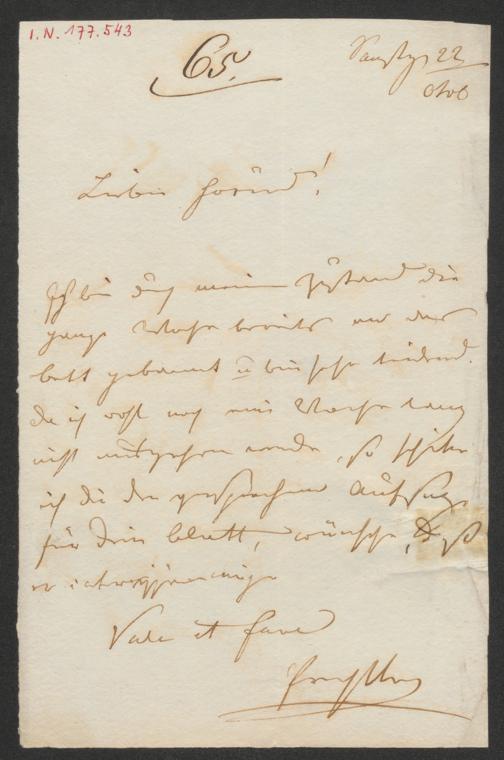 I.N. 177.543
65.
Samstag 22
Lieber Freund!
Ich bin durch meinen Zustand die
ganze Woche bereits an das
bett gebannt u bin sehr leidend.
da ich wohl noch eine Woche lang
nicht ausgehen werde, so schicke
ich dir den versprochenen Aufsatz
für dein blatt, wünsche, daß
er
Vale et fave